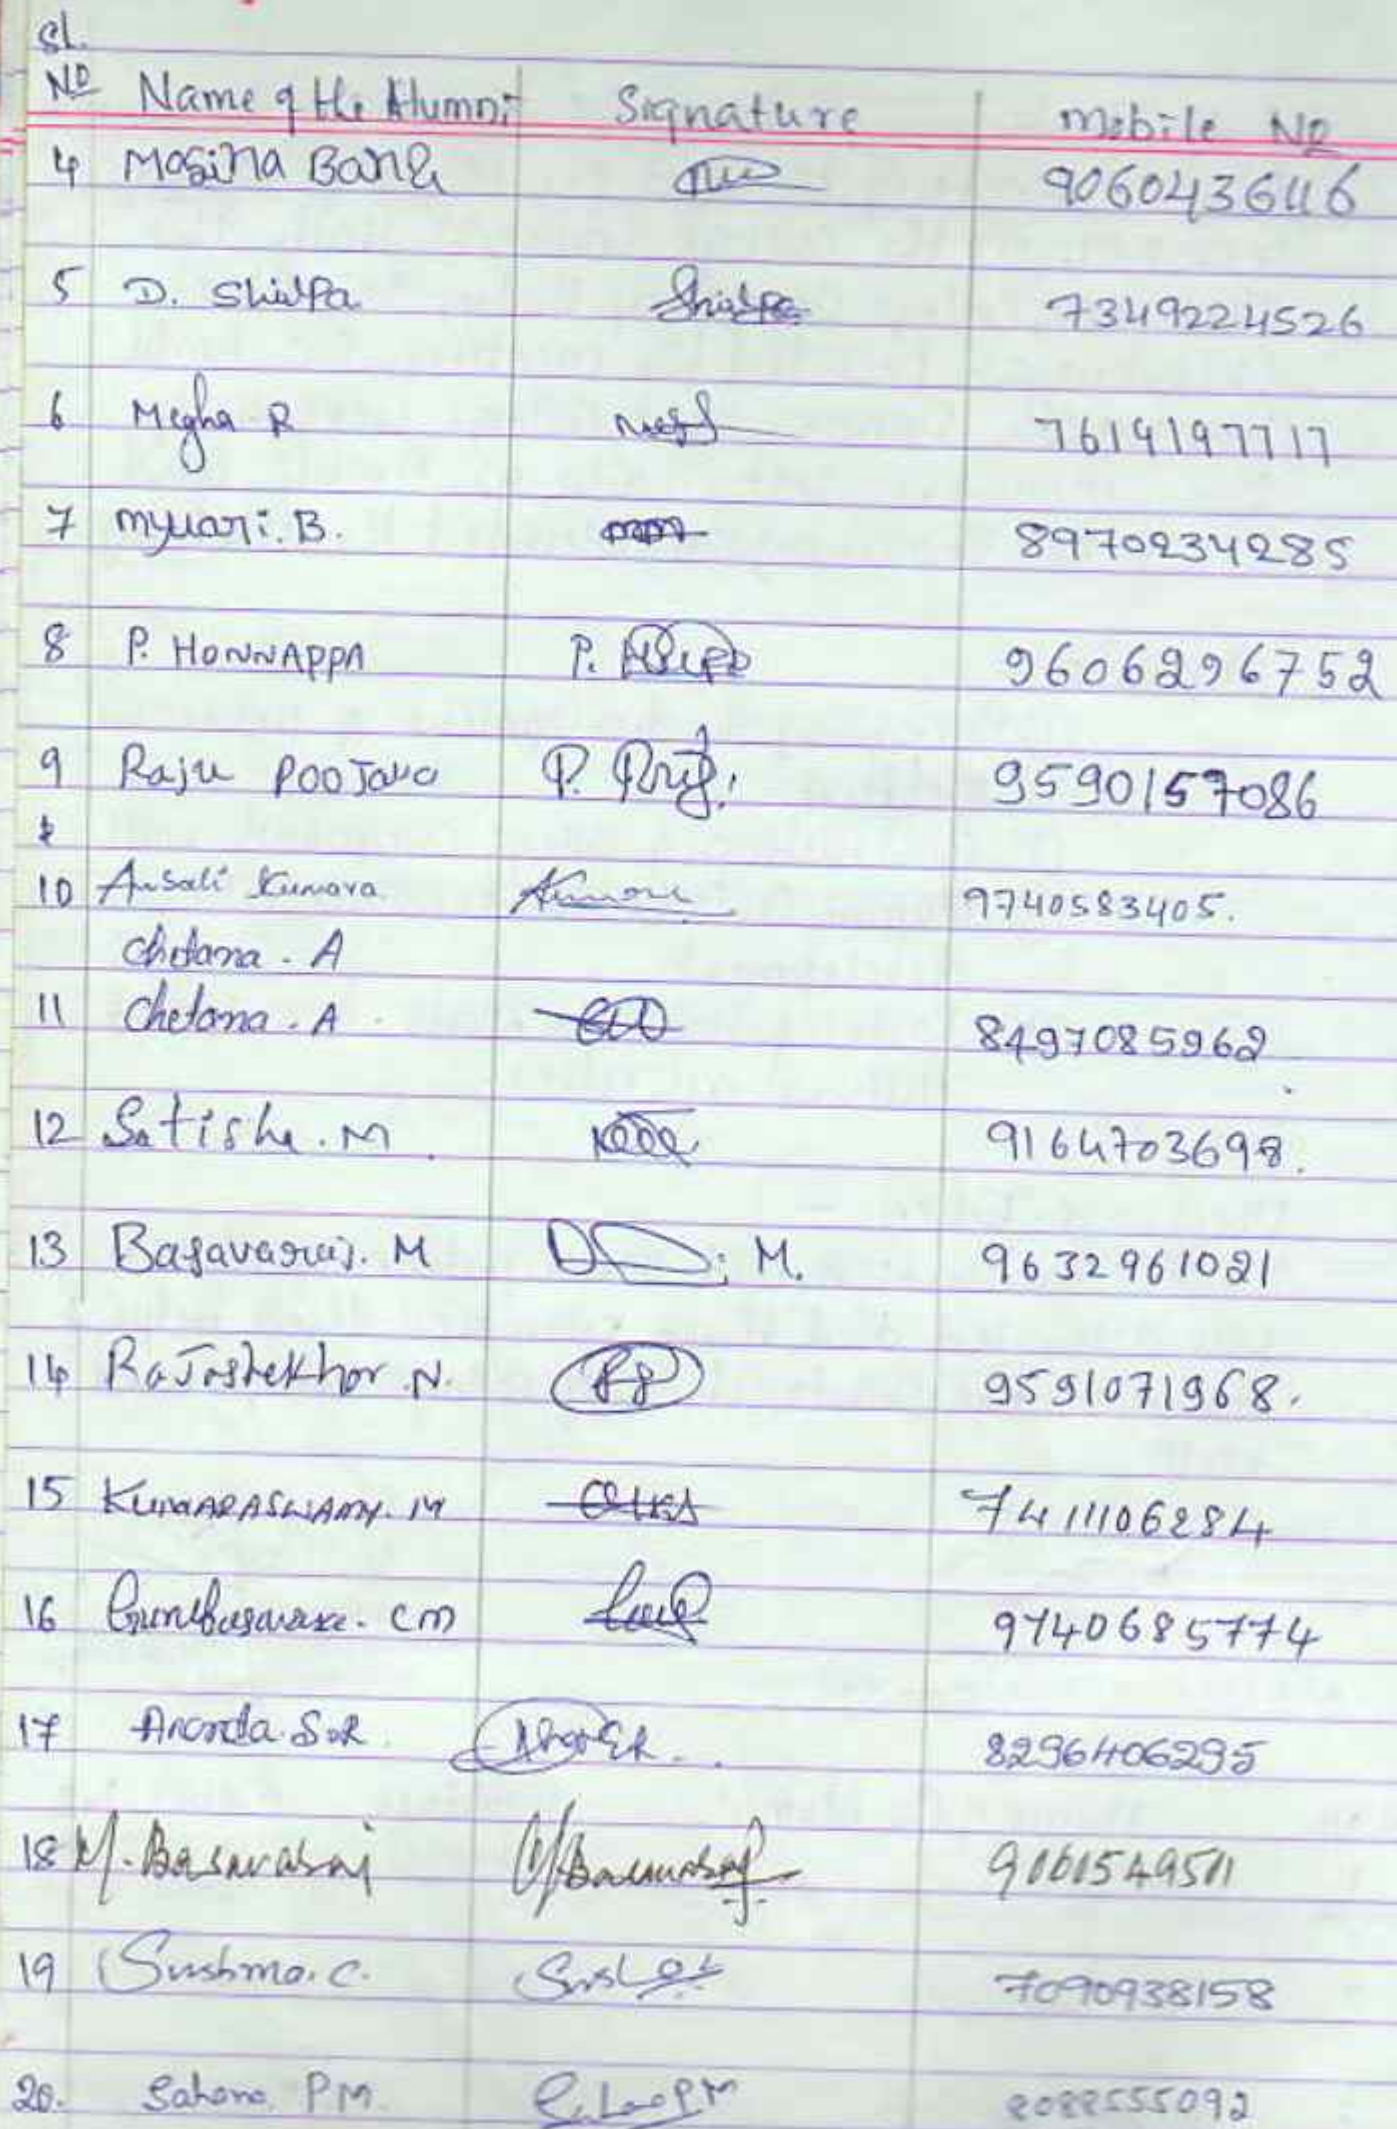 Sl.
No Name of the Alumni Signature Mobile No
4 Mosina Banu 9060436116
5 D. Shilpa Shilpa 7349224526
6 Megha R 7619197717
7 myuari. B. 8970234285
8 P. HONNAPPA P. 9606296752
9 Raju POOJARA P. 9590157086
10 Ansali Kumara 9740583405.
Chetana. A
11 Chetana. A 8497085962
12 Satisha. M 9164703698.
13 Basavaraj. M M. 9632961021
14 RaJashekhar. N. 9591071968.
15 KUMARASWAMY. M 7411106284
16 Gurubasavaraj. CM 9740685774
17 Ananda. S.R 8296406295
18 M. Basavaraj 9001549511
19 Sushma. C. 7090938158
20. Sahana. PM. PM 8088555092